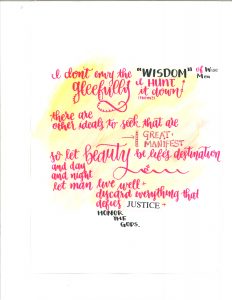 I don't envy the "WISDOM" of Wise Men
gleefully I HUNT it down!
there are
other ideals to seek that are
GREAT+
MANIFEST
so let beauty be life's destination
and day
and night
let man live well +
discard everything that
defies JUSTICE +
HONOR
THE
GODS.